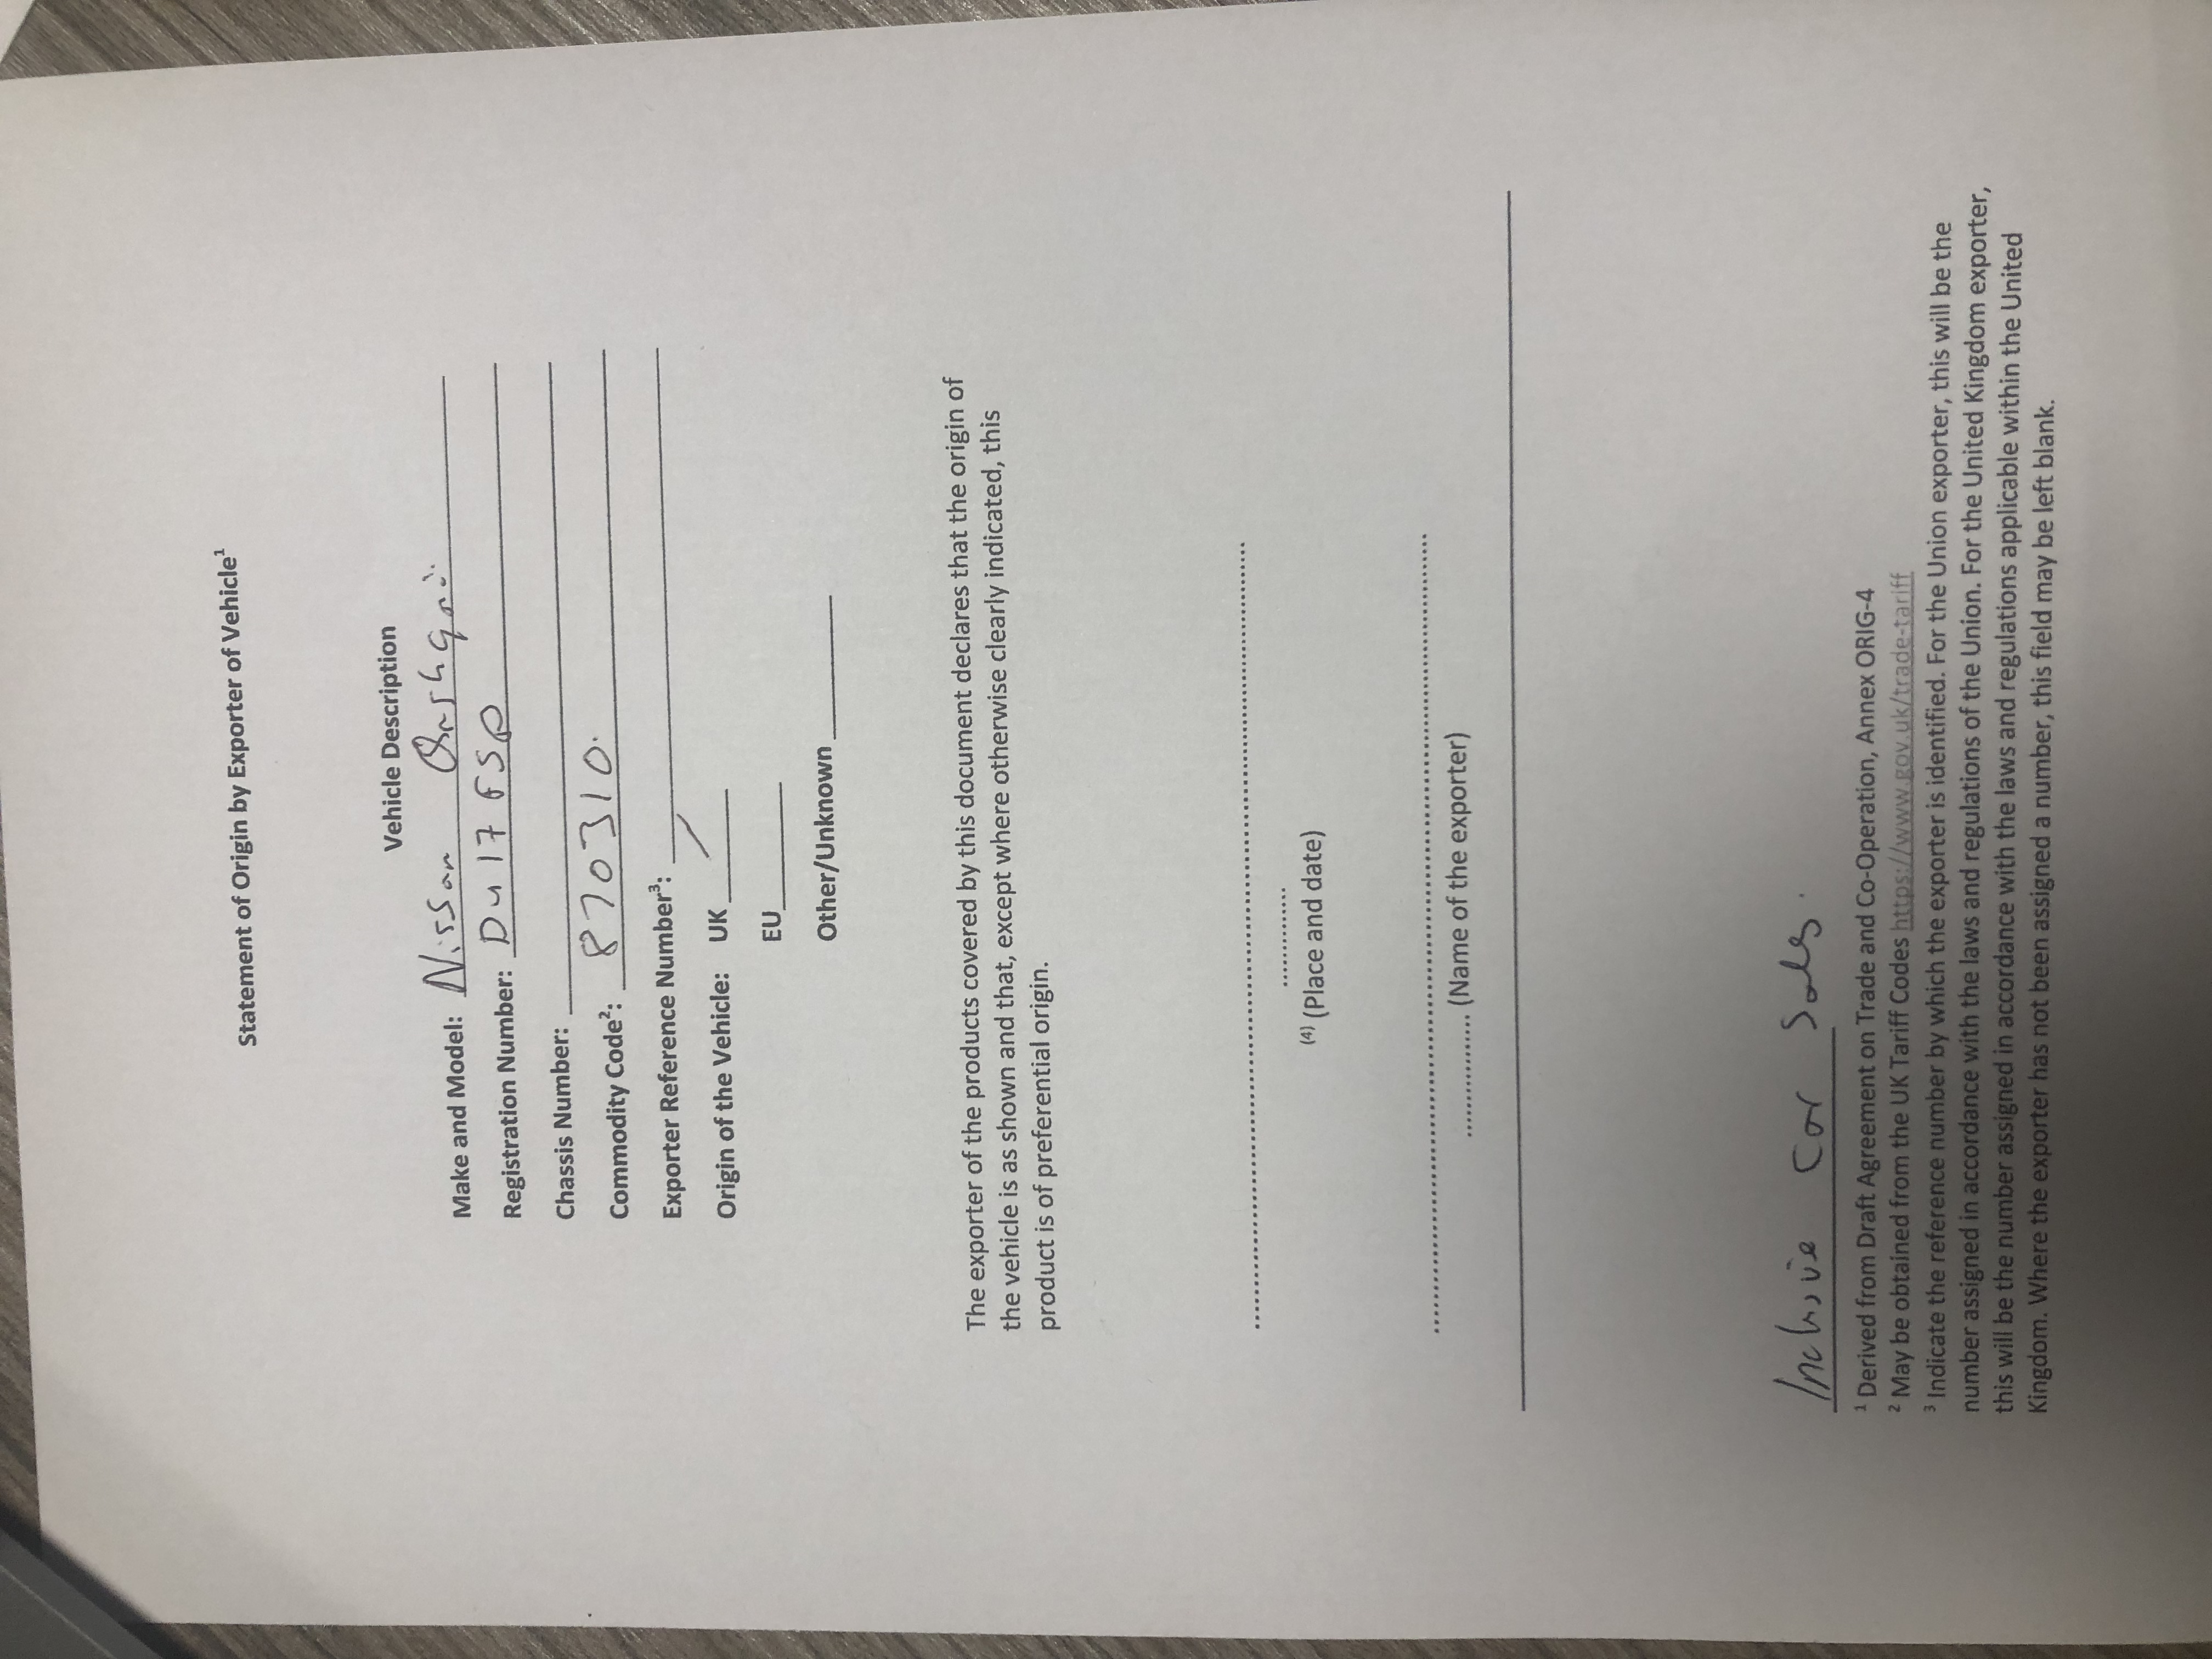 Statement of Origin by Exporter of Vehicle¹
Vehicle Description
Make and Model: Nissan Qashqai
Registration Number: Du 17 FSP
Chassis Number:
Commodity Code²: 870310.
Exporter Reference Number³:
Origin of the Vehicle: UK /
EU
Other/Unknown
The exporter of the products covered by this document declares that the origin of
the vehicle is as shown and that, except where otherwise clearly indicated, this
product is of preferential origin.
(4) (Place and date)
(Name of the exporter)
Inclusive Car Sales.
¹ Derived from Draft Agreement on Trade and Co-Operation, Annex ORIG-4
² May be obtained from the UK Tariff Codes https://www.gov.uk/trade-tariff
³ Indicate the reference number by which the exporter is identified. For the Union exporter, this will be the
number assigned in accordance with the laws and regulations of the Union. For the United Kingdom exporter,
this will be the number assigned in accordance with the laws and regulations applicable within the United
Kingdom. Where the exporter has not been assigned a number, this field may be left blank.